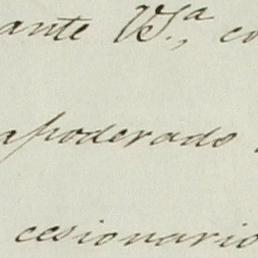 ante VS.ª, co
apoderado
cesionario